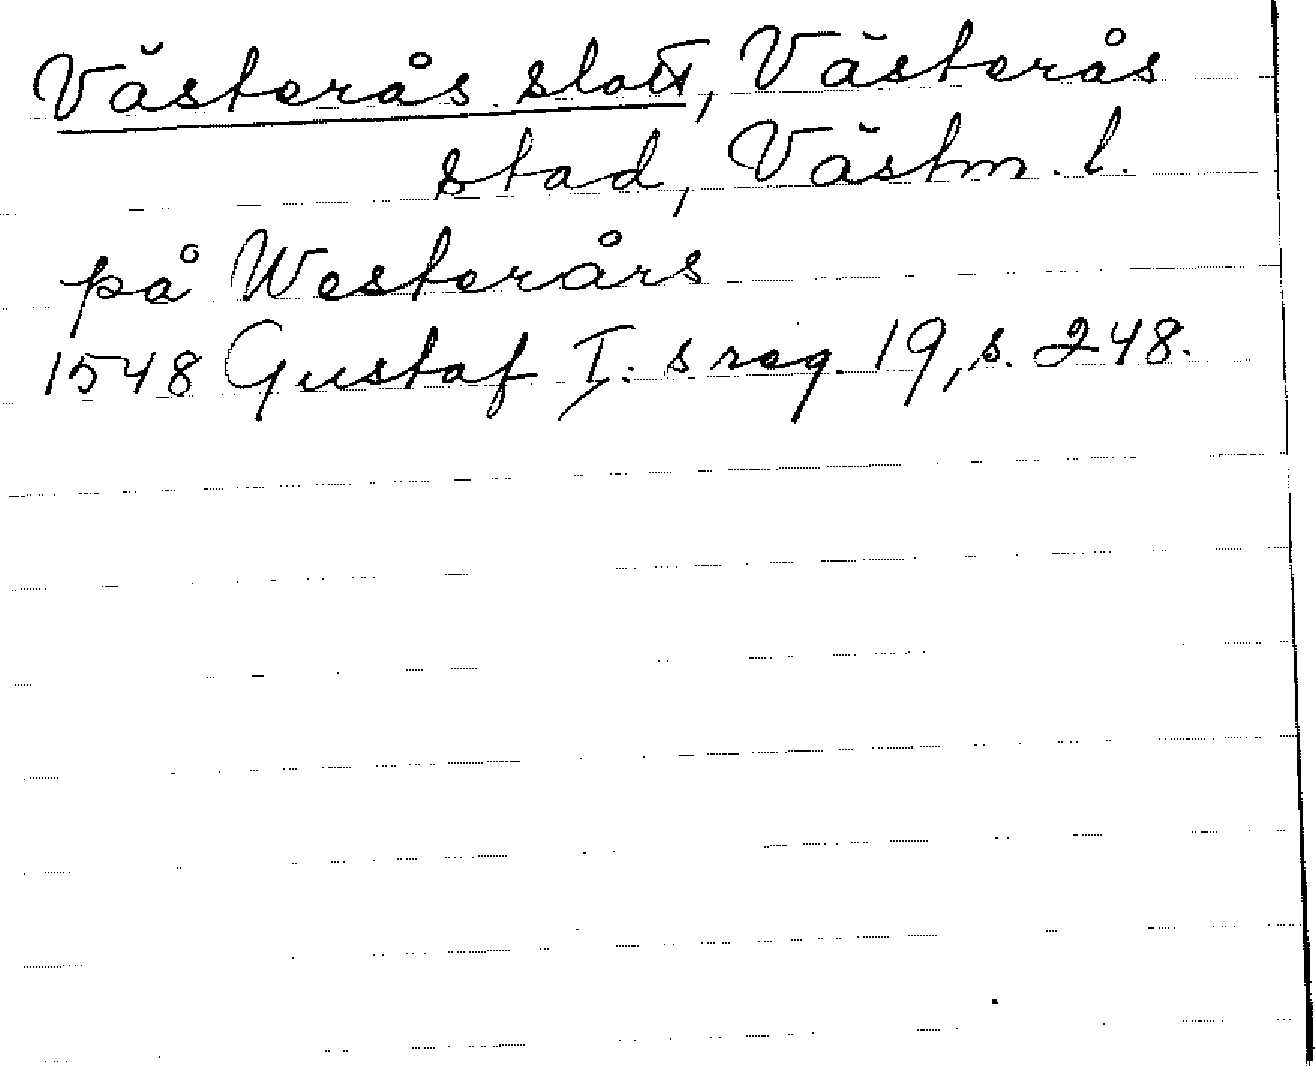 Västerås slott, Västerås
stad, Västm. l.
på Westerårs
1548 Gustaf I. s reg. 19, s. 248.